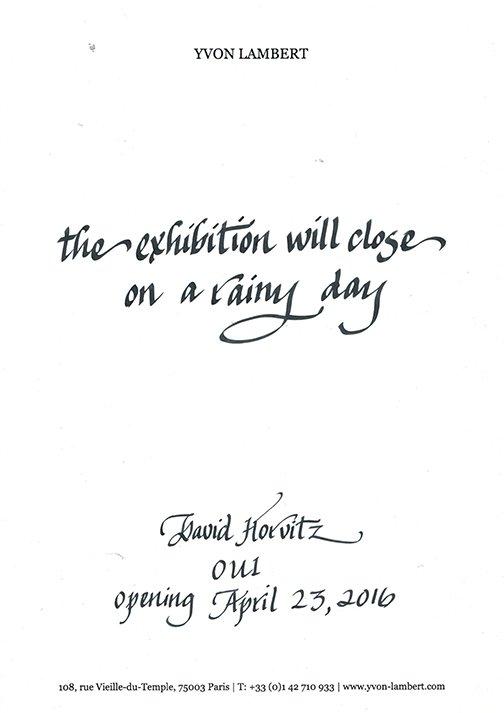 YVON LAMBERT
the exhibition will close
on a rainy day
David Horvitz
OUI
opening April 23, 2016
108, rue Vieille-du-Temple, 75003 Paris | T: +33 (0)1 42 710 933 | www.yvon-lambert.com